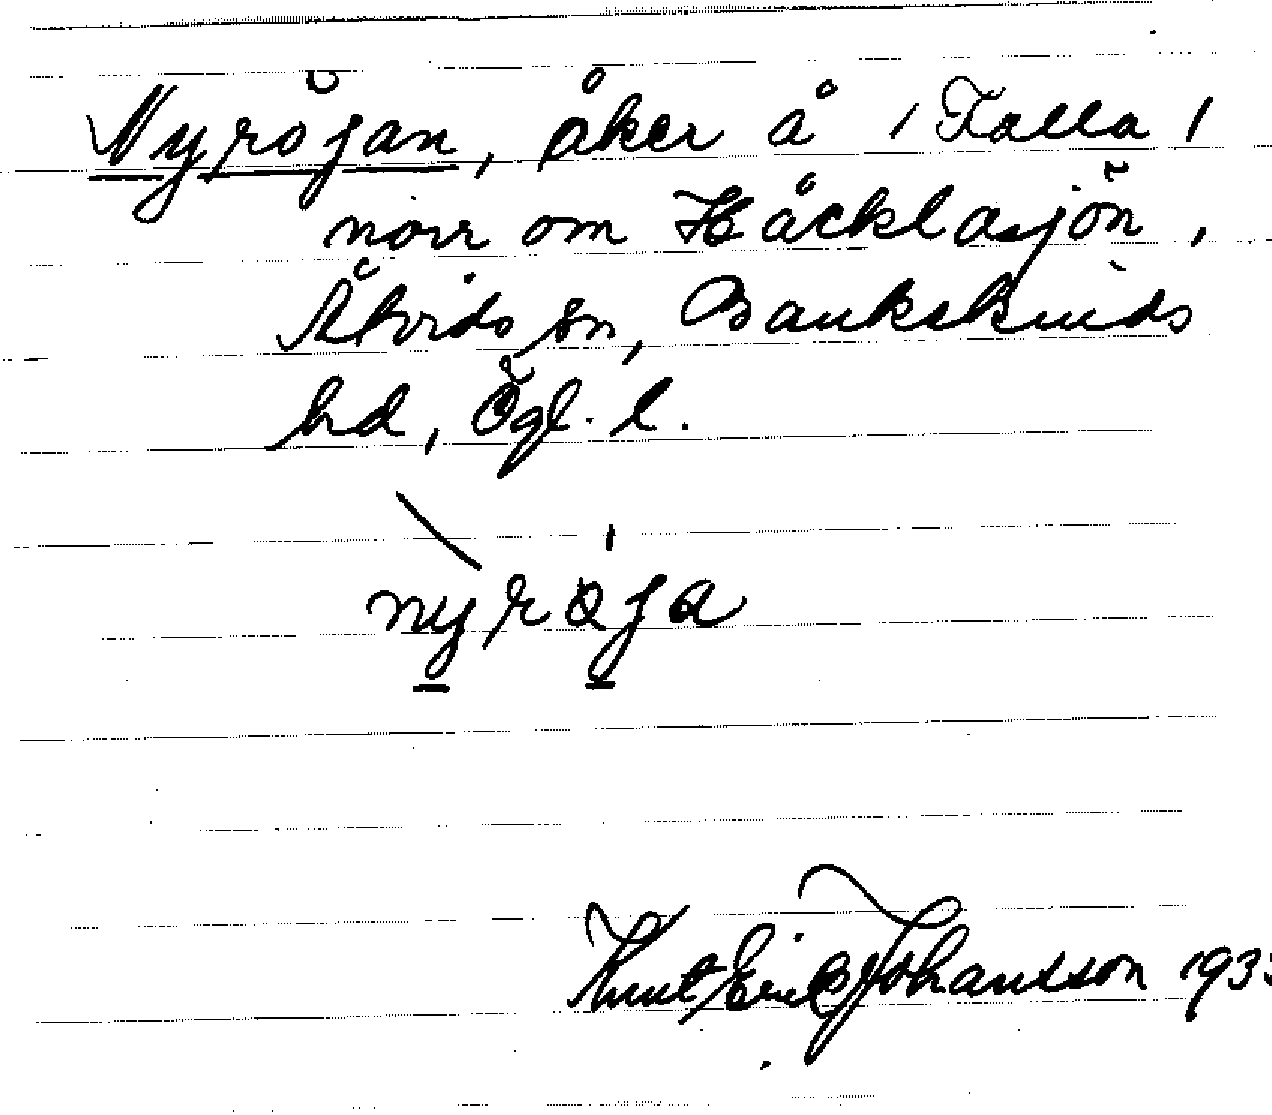 Nyröjan, åker å / Falla /
norr om Häcklasjön,
Åtvids sn, Bankekinds
hd, Ögl. l.
nyröja
Knut Erik Johansson 193